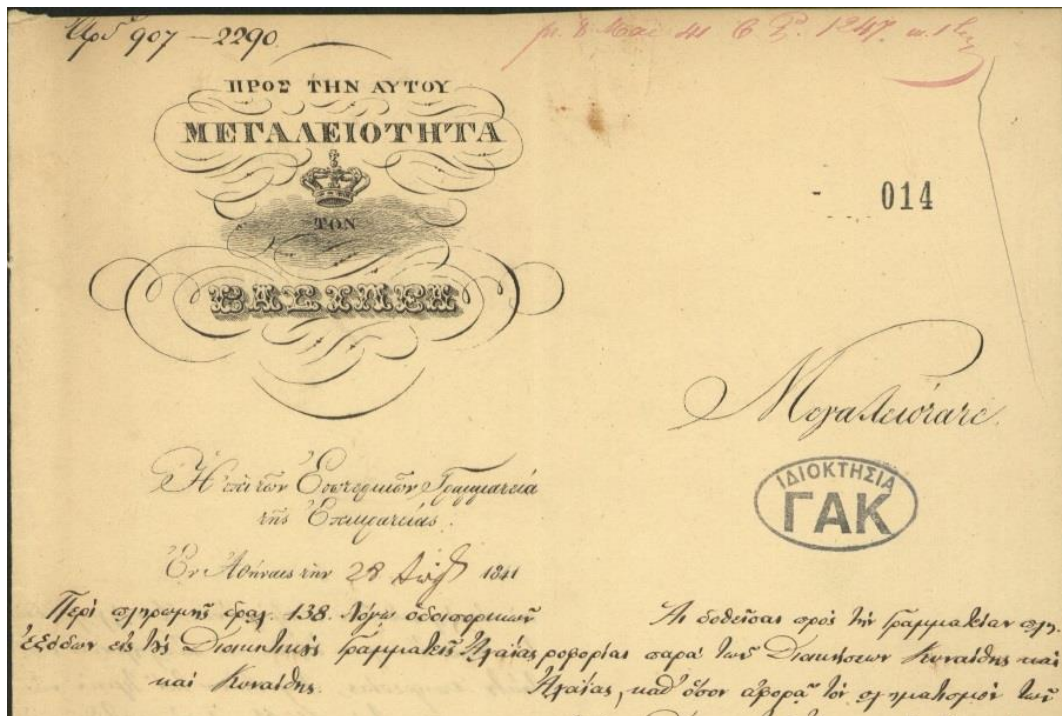 Ἀριθ. 907 – 2290.
1247
ΠΡΟΣ ΤΗΝ ΑΥΤΟΥ
ΜΕΓΑΛΕΙΟΤΗΤΑ
ΤΟΝ
ΒΑΣΙΛΕΑ
014
Μεγαλειότατε
ΙΔΙΟΚΤΗΣΙΑ
ΓΑΚ
Ἡ ἐπὶ τῶν Ἐσωτερικῶν Γραμματεία
τῆς Ἐπικρατείας.
Ἐν Ἀθήναις τὴν 28 1841
Περὶ πληρωμῆς δραχ. 138. λόγῳ ὁδοιπορικῶν
ἐξόδων εἰς τοὺς Διοικητικοὺς Γραμματεῖς Ἀχαΐας
καὶ Κυναίθης.
Αἱ δοθεῖσαι πρὸς τὴν Γραμματείαν πλη-
ροφορίαι παρὰ τῶν Διοικήσεων Κυναίθης καὶ
Ἀχαΐας, καθ' ὅσον ἀφορᾷ τὸν σχηματισμὸν τῶν